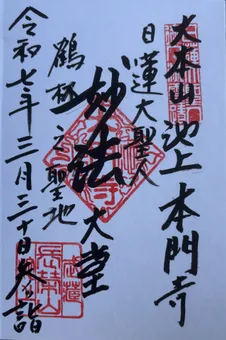 大本山池上本門寺
日蓮大聖人
妙法大堂
鶴林之聖地
令和七年三月三十日参詣